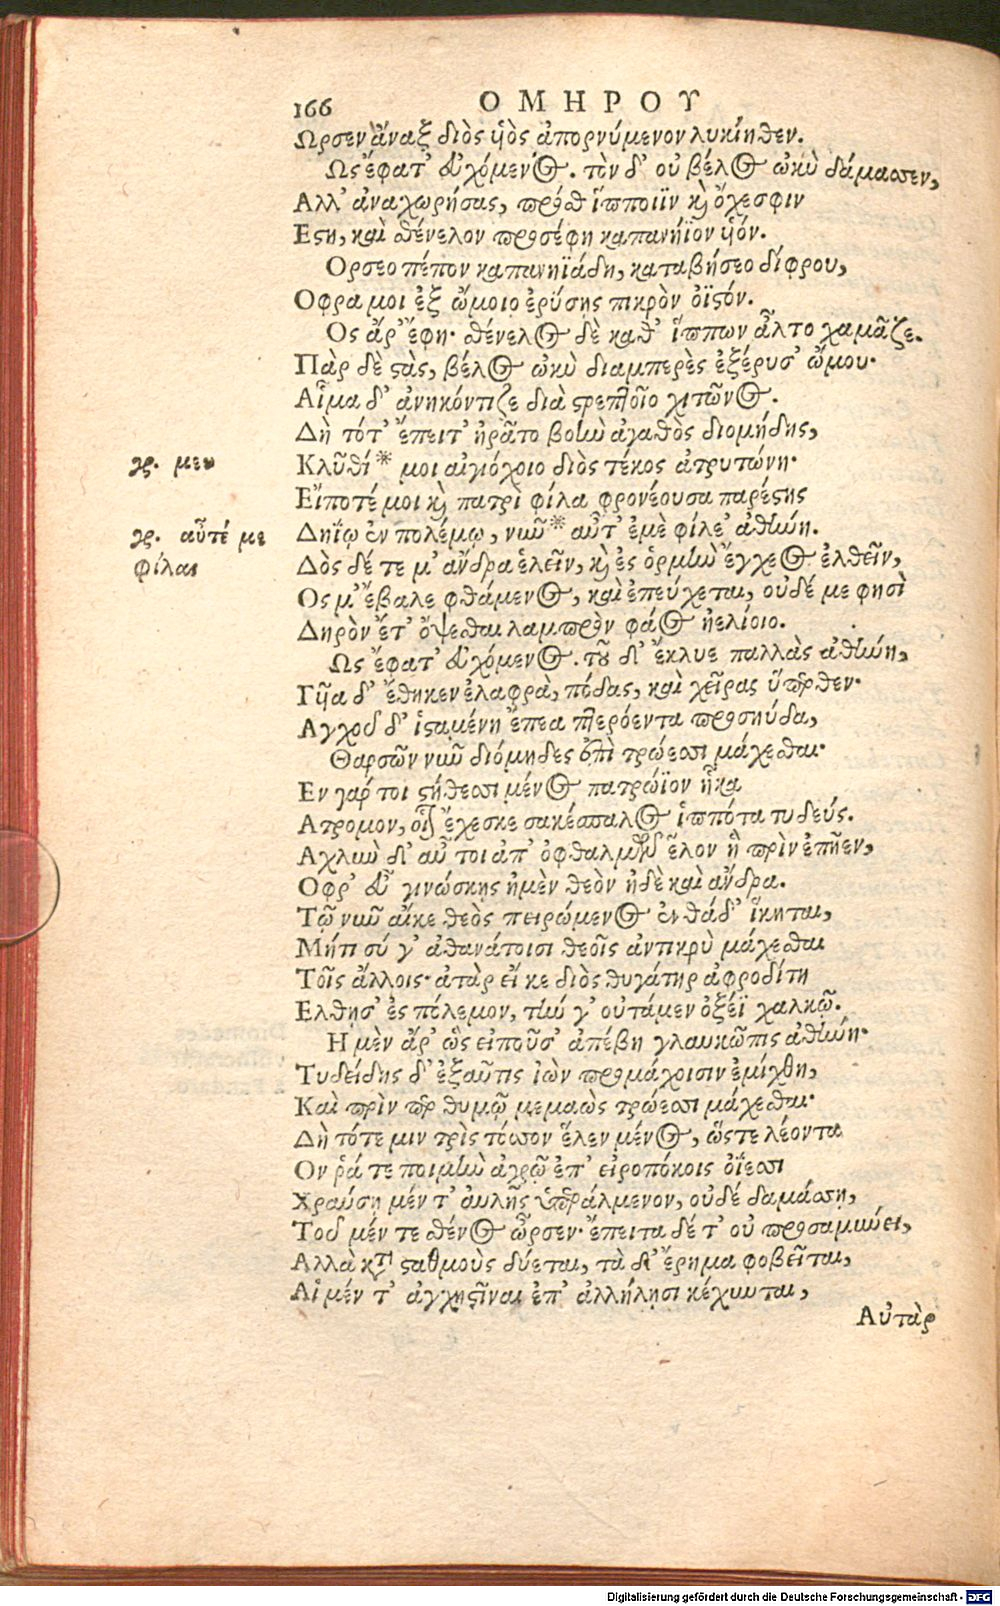 166 ΟΜΗΡΟΥ
Ωρσεν ἄναξ διὸς ὑιὸς ἀπορνύμενον λυκίηθεν.
Ως ἔφατ' εὐχόμενος. τὸν δ' οὐ βέλος ὠκὺ δάμασσεν,
Αλλ' ἀναχωρήσας, πρόσθ' ἵπποιϊν κὶ ὄχεσφιν
Εστη, καὶ σθένελον προσέφη καπανήϊον ὑιόν.
Ορσεο πέπον καπανηϊάδη, καταβήσεο δίφρου,
Οφρα μοι ἐξ ὤμοιο ἐρύσης πικρὸν ὀϊστόν.
Ος ἄρ' ἔφη· σθένελος δὲ καθ' ἵππων ἆλτο χαμᾶζε.
Πὰρ δὲ στὰς, βέλος ὠκὺ διαμπερὲς ἐξέρυσ' ὤμου·
Αἷμα δ' ἀνηκόντιζε διὰ στρεπτοῖο χιτῶνος.
Δὴ τότ' ἔπειτ' ἠρᾶτο βοὴν ἀγαθὸς διομήδης,
γρ. μευ
Κλῦθί* μοι αἰγιόχοιο διὸς τέκος ἀτρυτώνη·
Εἴποτέ μοι κὶ πατρὶ φίλα φρονέουσα παρέστης
γρ. αὖτέ με
φίλαι
Δηΐῳ ἐν πολέμῳ, νῦν* αὖτ' ἐμὲ φίλε' ἀθήνη.
Δὸς δέ τε μ' ἄνδρα ἑλεῖν, κὶ ἐς ὁρμὴν ἔγχεος ἐλθεῖν,
Ος μ' ἔβαλε φθάμενος, καὶ ἐπεύχεται, οὐδέ με φησὶ
Δηρὸν ἔτ' ὄψεσθαι λαμπρὸν φάος ἠελίοιο.
Ως ἔφατ' εὐχόμενος. τοῦ δ' ἔκλυε παλλὰς ἀθήνη,
Γῆα δ' ἔθηκεν ἐλαφρὰ, πόδας, καὶ χεῖρας ὕπερθεν·
Αγχοῦ δ' ἱσταμένη ἔπεα πτερόεντα προσηύδα,
Θαρσῶν νῦν διόμηδες ἐπὶ τρώεσσι μάχεσθαι·
Εν γάρ τοι στήθεσσι μένος πατρώϊον ἧκα
Ατρομον, οἷον ἔχεσκε σακέσπαλος ἱππότα τυδεύς.
Αχλὺν δ' αὖ τοι ἀπ' ὀφθαλμῶν ἕλον ἣ πρὶν ἐπῆεν,
Οφρ' εὖ γινώσκης ἠμὲν θεὸν ἠδὲ καὶ ἄνδρα.
Τῷ νῦν αἴκε θεὸς πειρώμενος ἐνθάδ' ἵκηται,
Μήτι σύ γ' ἀθανάτοισι θεοῖς ἀντικρὺ μάχεσθαι
Τοῖς ἄλλοις· ἀτὰρ εἴ κε διὸς θυγάτηρ ἀφροδίτη
Ελθησ' ἐς πόλεμον, τήν γ' οὐτάμεν ὀξέϊ χαλκῷ.
Η μὲν ἄρ' ὣς εἰποῦσ' ἀπέβη γλαυκῶπις ἀθήνη·
Τυδείδης δ' ἐξαῦτις ἰὼν προμάχοισιν ἐμίχθη,
Καὶ πρὶν περ θυμῷ μεμαὼς τρώεσσι μάχεσθαι·
Δὴ τότε μιν τρὶς τόσσον ἕλεν μένος, ὥστε λέοντα
Ον ῥά τε ποιμὴν ἀγρῷ ἐπ' εἰροπόκοις ὀΐεσσι
Χραύση μέν τ' αὐλῆς ὑπεράλμενον, οὐδέ δαμάσση,
Τοῦ μέν τε σθένος ὦρσεν· ἔπειτα δέ τ' οὐ προσαμύνει,
Αλλὰ κατὰ σταθμοὺς δύεται, τὰ δ' ἔρημα φοβεῖται,
Αἱ μέν τ' ἀγχηστῖναι ἐπ' ἀλλήλησι κέχυνται,
Αὐτὰρ
Digitalisierung gefördert durch die Deutsche Forschungsgemeinschaft - DFG